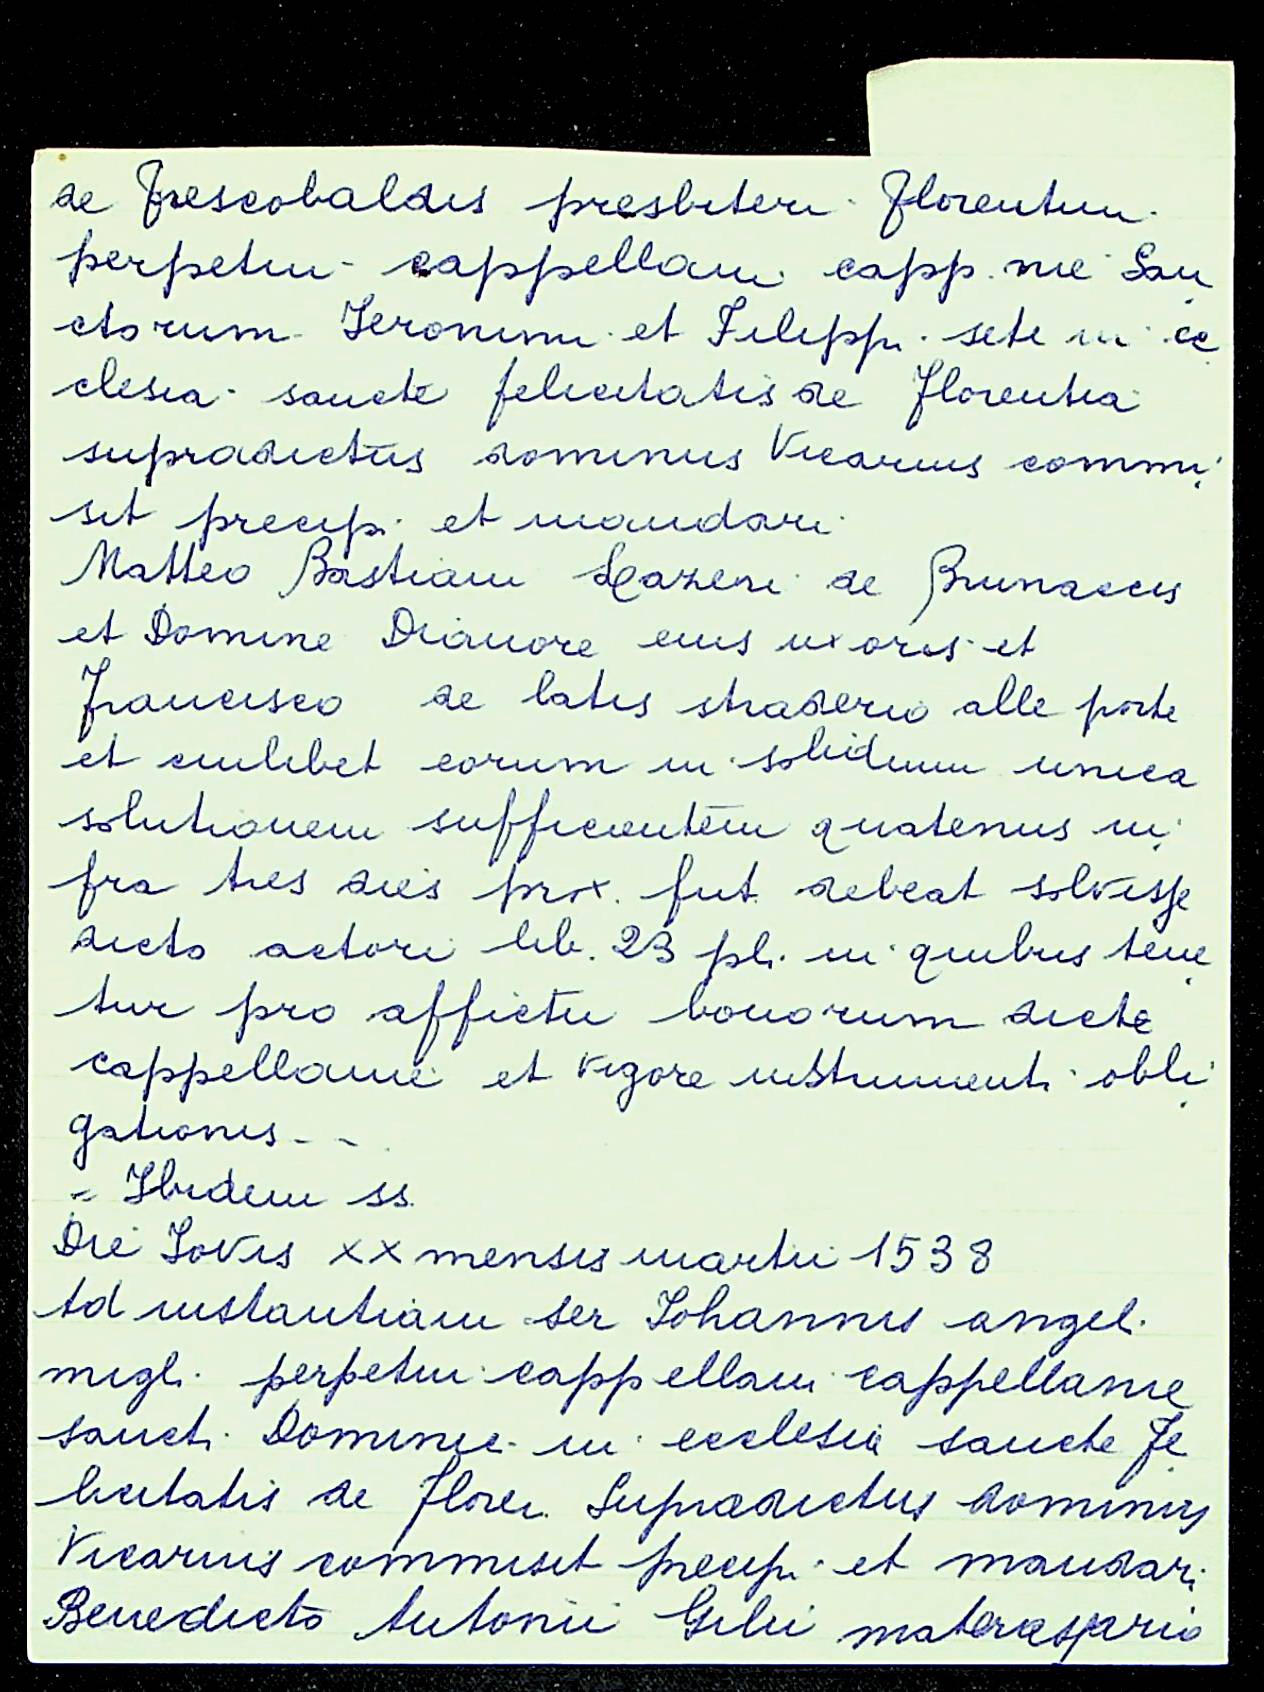 de Frescobaldis presbiteri Florentini
perpetui cappellani capp.nie San
ctorum Ieronimi et Filippi site in ec
clesia sancte felicitatis de Florentia
supradictus dominus Vicarius commi
sit precip. et mandari
Matteo Bastiani Lazeri de Brunaccis
et Domine Dianore eius uxoris et
Francisco de latis straderio alle porte
et cuilibet eorum in solidum unica
solutionem sufficientem quatenus in
fra tres dies prox. fut. debeat solvisse
dicto actori lib. 23 pl. in quibus tene
tur pro affictu bonorum dicte
cappellanie et vigore instrumenti obli
gationis - -
- Ibidem ss.
Die Iovis xx mensis martii 1538
Ad instantiam ser Iohannis angel.
migl. perpetui cappellani cappellanie
sancti Dominic. in ecclesia sancte Fe
licitatis de Floren. Supradictus dominus
Vicarius commisit precip. et mandari
Benedicto Antonii Gilii